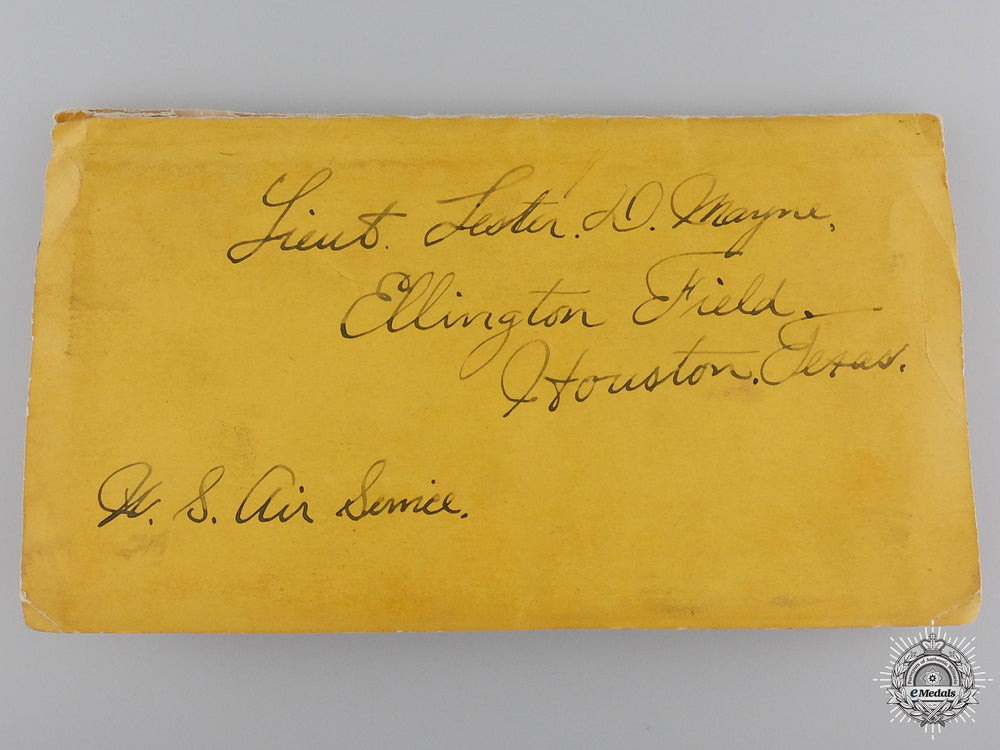 Lieut. Lester. D. Mayne,
Ellington Field,
Houston, Texas.
U. S. Air Service.
eMedals